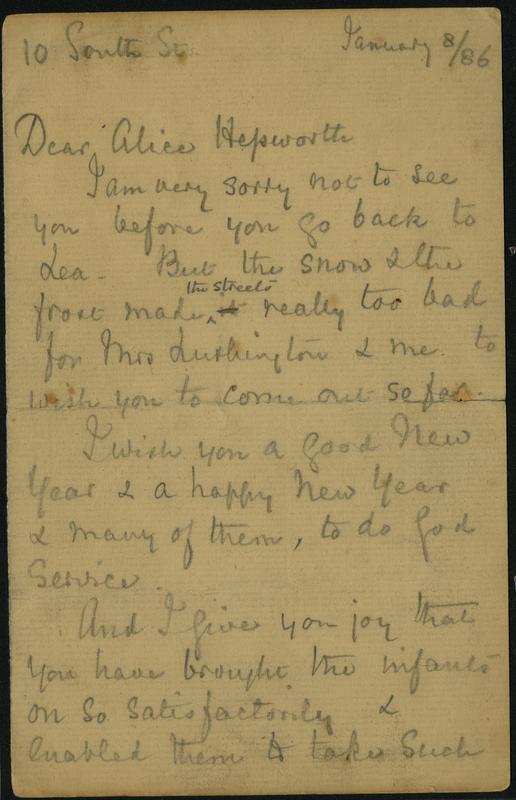 10 South St. January 8/86
Dear Alice Hepworth
I am very sorry not to see
you before you go back to
Lea - But the snow & the
the streets
frost made it really too bad
for Mrs Lushington & me to
wish you to come out so far.
I wish you a good New
Year & a happy New Year
& many of them, to do God
Service.
And I give you joy that
you have brought the infants
on so satisfactorily &
enabled them to take such